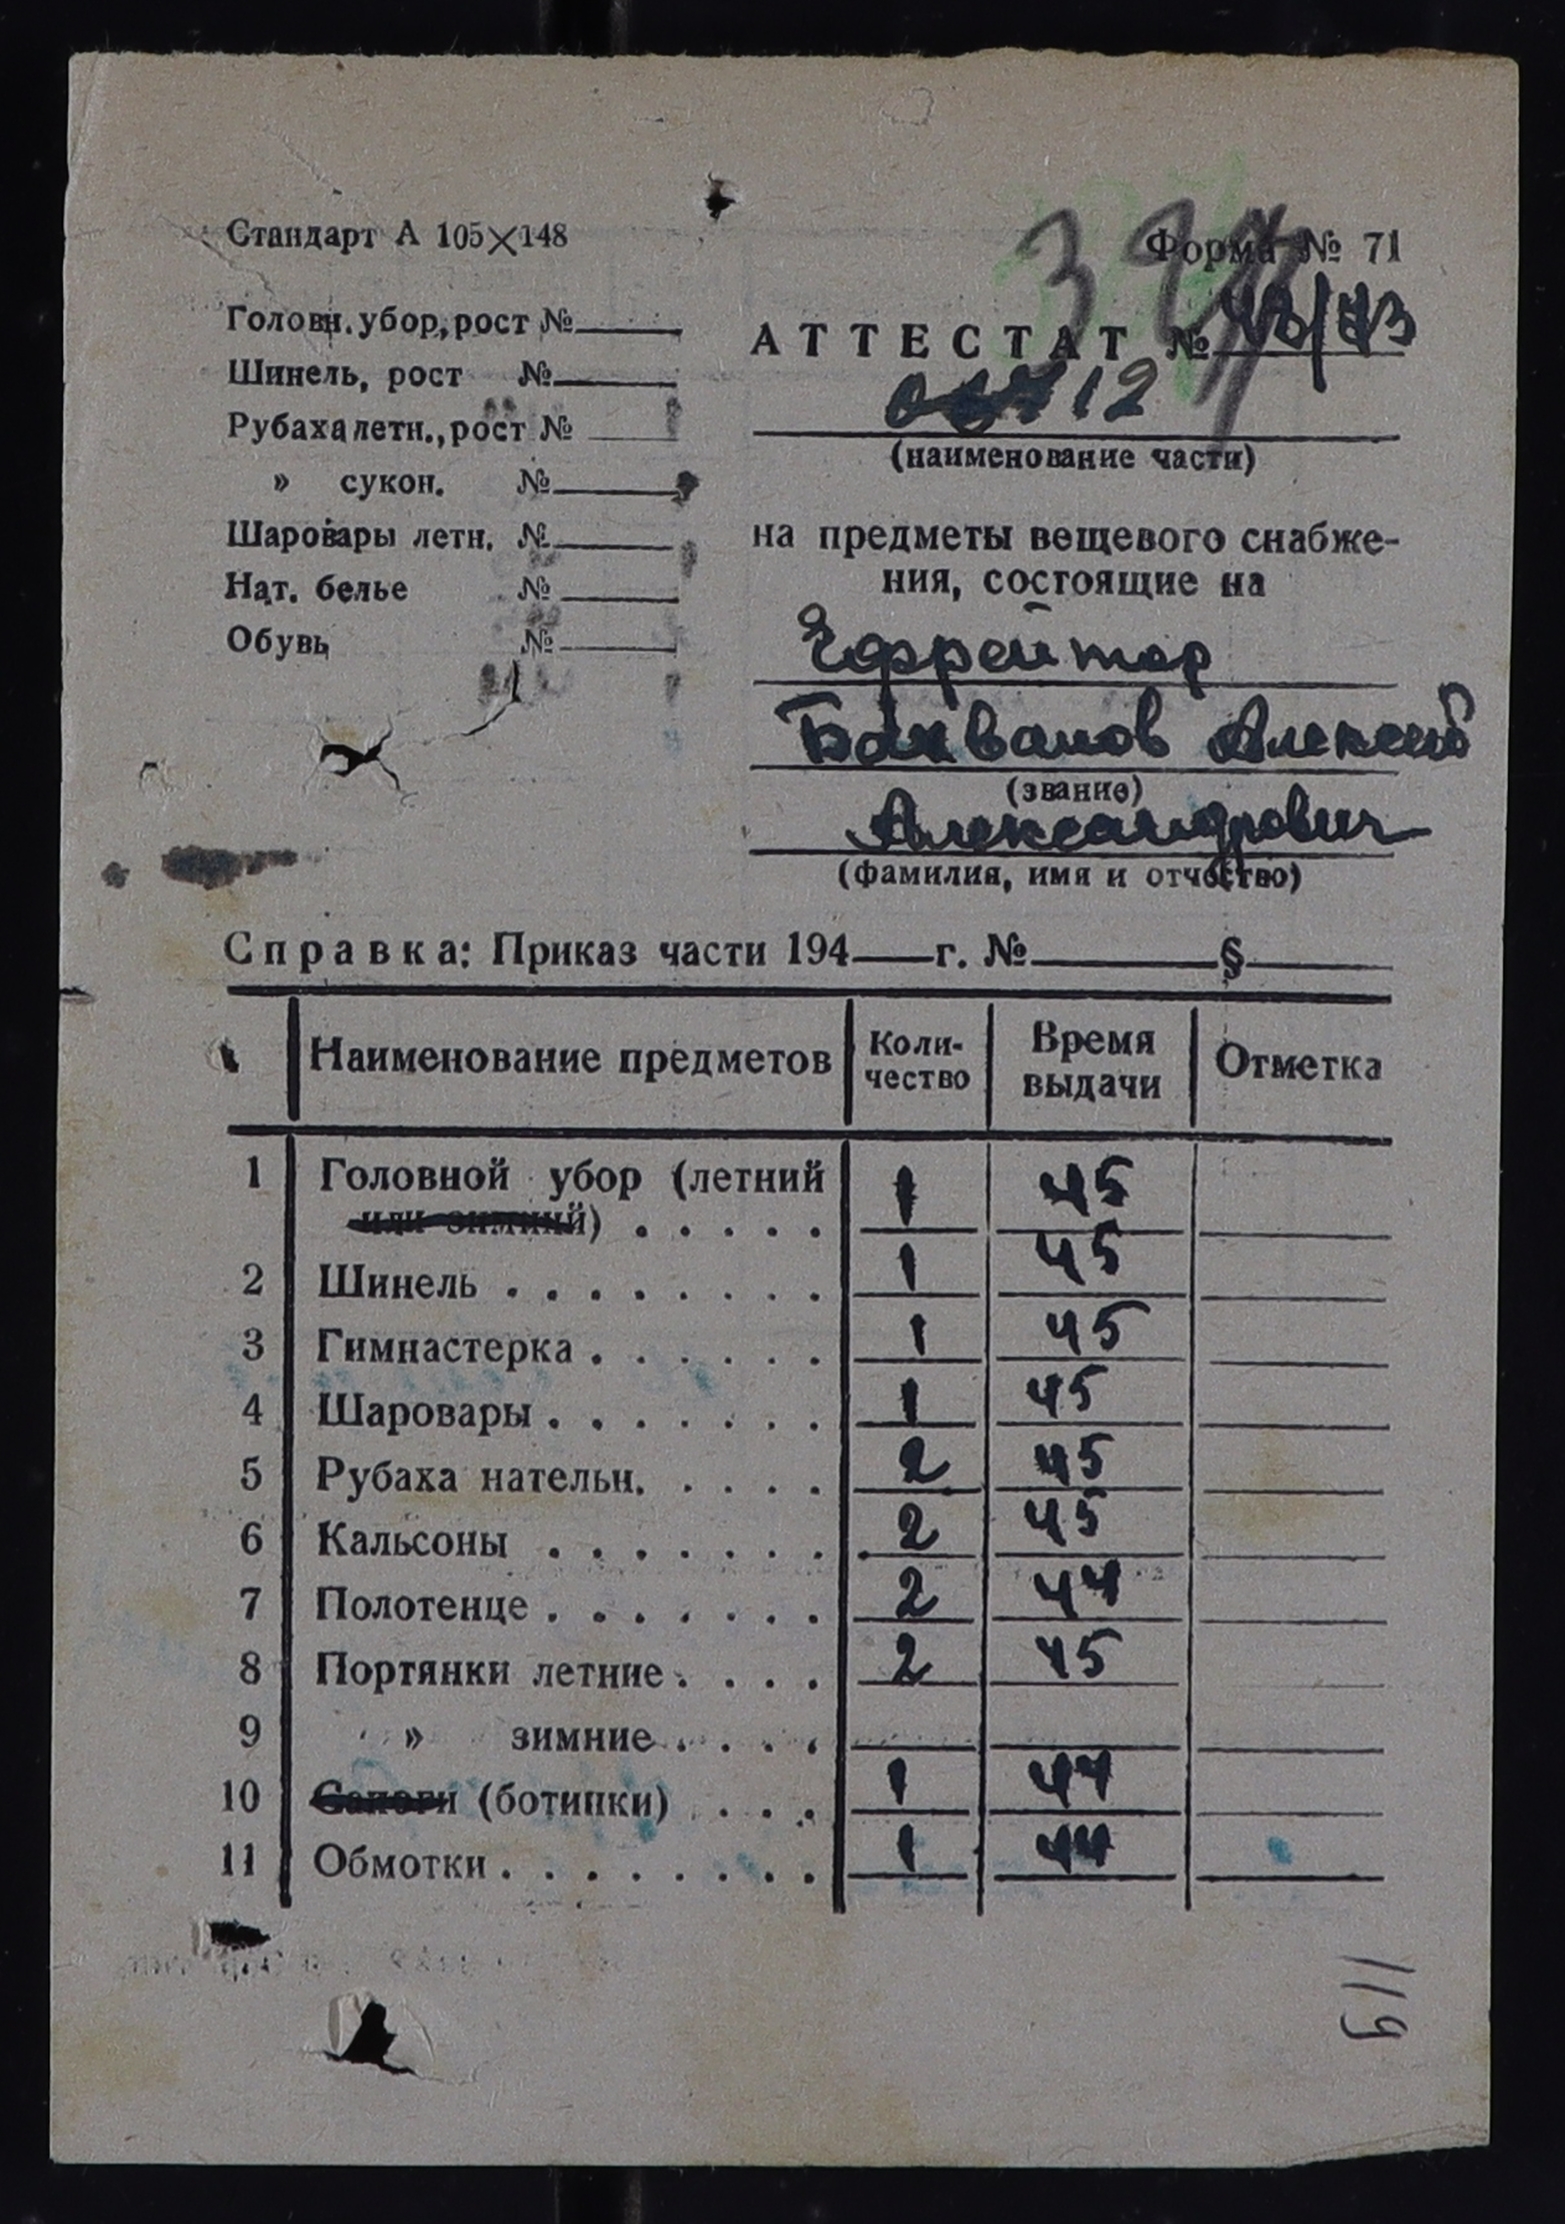 Стандарт А 105×148
Форма № 71
Головн. убор, рост №
Шинель, рост №
Рубаха летн., рост №
» сукон. №
Шаровары летн. №
Нат. белье №
Обувь №
АТТЕСТАТ №
12
(наименование части)
на предметы вещевого снабже-
ния, состоящие на
Ефрейтор
Бахвалов Алексей
(звание)
Александрович
(фамилия, имя и отчество)
Справка: Приказ части 194 г. № §
Наименование предметов Коли-чество Время выдачи Отметка
1 Головной убор (летний 1 45
или зимний) . . . . .
2 Шинель . . . . . . . . 1 45
3 Гимнастерка . . . . . . 1 45
4 Шаровары . . . . . . . 1 45
5 Рубаха нательн. . . . . 2 45
6 Кальсоны . . . . . . . 2 45
7 Полотенце . . . . . . . 2 44
8 Портянки летние . . . . 2 45
9 » зимние . . . .
10 Сапоги (ботинки) . . . 1 44
11 Обмотки . . . . . . . . 1 44
119